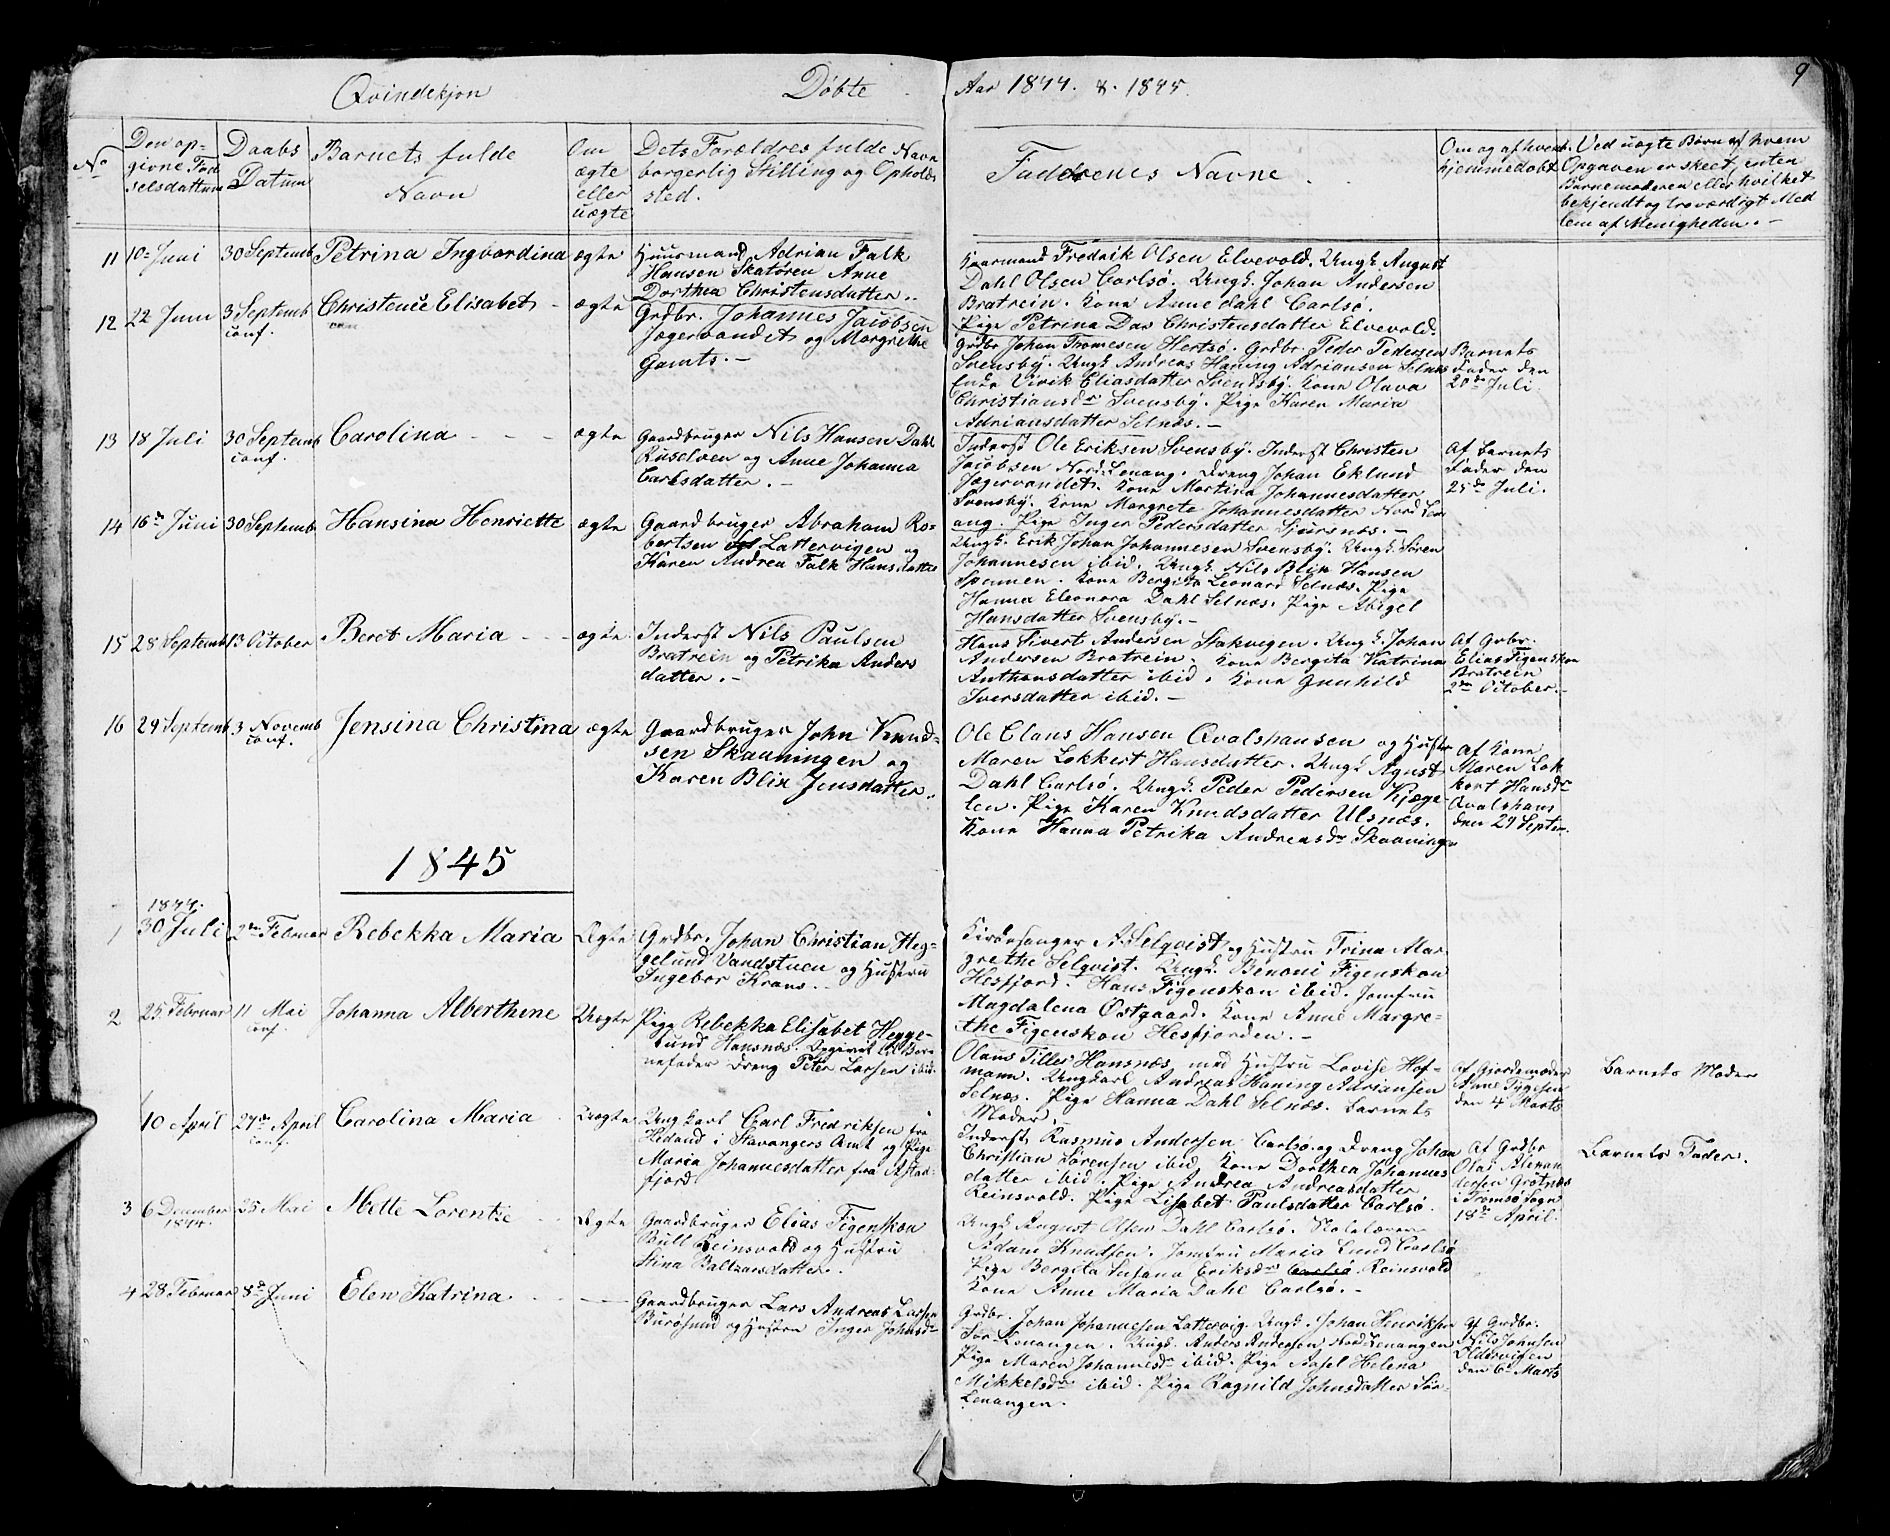 Qvindekjøn Døbte Aar 1844. & 1845. 9
No
Den op-
givne Fød
selsdattum
Daabs
Datum
Barnets fulde
Navn
Om
ægte
eller
uægte
Dets Forældres fulde Navn
borgerlig Stilling og Opholds
sted.
Faddrenes Navne
Om og af hvem
hjemmedøbt
Ved uægte Børn af hvem
Opgaven er skeet, enten
Barnemoderen eller hvilket
bekjendt og troværdigt Med
lem af Menigheden. -
11 10 Juni 30 Septemb Petrina Ingvordina ægte
Huusmand Adrian Falk
Hansen Skatøren Anne
Dorthea Christensdatter.
Fredrik Olsen Elvevold. Ungk. August
Dahl Olsen Carlsø. Ungk. Johan Andersen
Bratrein. Kone Anne Dahl Carlsø.
Pige Petrina Das Christensdatter Elvevold.
12 22 Juni 3 Septemb
conf.
Christence Elisabet - ægte
Grdbr. Johannes Jacobsen
Jægervandet og Margrethe
Gamts. -
Grdbr Johan Tromesen Hertsø. Grdbr. Peder Pedersen
Svensby. Ungk Andreas Haning Adriansen Selnæs
Enke Virik Eliasdatter Svendsby. Kone Olava
Christiansdr Svensby. Pige Karen Maria
Adriansdatter Selnæs. -
Barnets
Fader den
20de Juli.
13 18 Juli 30 Septemb
conf.
Carolina - - - ægte
Gaardbruger Nils Hansen Dahl
Ruselven og Anne Johanna
Carlsdatter. -
Inderst Ole Eriksen Svensby. Inderst Christen
Jacobsen Nord-Lenang. Dreng Johan Eklund
Jægervandet. Kone Martina Johannesdatter
Svensby. Kone Margrete Johannesdatter Nord Len
ang. Pige Inger Pedersdatter Sjursnæs. -
Af Barnets
Fader den
25de Juli.
14 16de Juni 30 Septemb Hansina Henriette ægte
Gaardbruger Abraham Ro-
bertsen Lattervigen og
Karen Andrea Falk Hansdatter
Ungk. Erik Johan Johannesen Svensby. Ungk. Søren
Johannesen ibid. Ungk. Nils Blix Hansen
Spennen. Kone Bergita Leonard Selnæs. Pige
Hanna Eleonora Dahl Selnæs. Pige Abigel
Hansdatter Svensby. -
15 28 Septemb 13 October Beret Maria - - - ægte
Inderst Nils Paulsen
Bratrein og Petrika Anders
datter. -
Hans Sivert Andersen Stakvigen. Ungk. Johan
Andersen Bratrein. Kone Bergita Katrina
Anthonsdatter ibid. Kone Gunhild
Iversdatter ibid. -
Af Grbr.
Elias Figenskou
Bratrein
2den October. -
16 29 Septemb 3 Novemb
conf.
Jensina Christina ægte
Gaardbruger John Knud-
sen Skauningen og
Karen Blix Jensdatter.
Ole Claus Hansen Qvalshausen og Hustru
Maren Lokkert Hansdatter. Ungk Agust
Dahl Carlsø. Ungk. Peder Pedersen Kjæge-
len. Pige Karen Knudsdatter Ulsnæs.
Kone Hanna Petrika Andreasdr Skaaningen
Af Kone
Maren Lok
kert Hansdr
Qvalshaus
den 29 Septem.
1845
1 1844.
30 Juli 2den Februar Rebekka Maria Ægte
Grdbr. Johan Christian Heg-
gelund Vandstuen og Hustru
Ingebor Krans. -
Kirkesanger A. Selqvist og Hustru Trina Mar-
grethe Selqvist. Ungk. Benoni Figenskou
Hesfjord. Hans Figenskou ibid. Jomfru
Magdalena Østgaard. Kone Anne Margre-
the Figenskou Hesfjorden. -
2 25 Februar 11 Mai
conf.
Johanna Alberthine Uægte
Pige Rebekka Elisabet Hegge-
lund Hansnæs. Opgivet til Bar
nefader Dreng Peter Larsen ibid.
Olaus Tilles Hansnæs med Hustru Lovise Hof-
mann. Ungkarl Andreas Haning Adriansen
Selnæs. Pige Hanna Dahl Selnæs. Barnets
Moder.
Af Gjordemoder
Anne Tygesen
den 4 Marts
Barnets Moder
10 April 27de April
conf.
Carolina Maria - Uægte
Ungkarl Carl Fredriksen fra
Hitland i Stavangers Amt og Pige
Maria Johannesdatter fra Astad-
fjord
Inderst Rasmus Andersen Carlsø og Dreng Johan
Christian Sørensen ibid. Kone Dorthea Johannes
datter ibid. Pige Andrea Andreasdatter
Reinsvold. Pige Lisabet Paulsdatter Carlsø.
Af Grdbr
Olai Alexan
dersen Grøtnæs
i Tromsø Sogn
18de April.
Barnets Fader.
3 6 December
1844.
25 Mai Mette Lorentze - - Ægte
Gaardbruger Elias Figenskou
Bull Reinsvold og Hustru
Stina Baltzarsdatter.
Ungk August Olsen Dahl Carlsø. Skolelærer
Adam Knudsen. Jomfru Maria Lund Carlsø
Pige Bergita Susana Eriksdr Carlsø Reinsvold
Kone Anne Maria Dahl Carlsø. -
4 28 Februar 8de Juni Elen Katrina - -
Gaardbruger Lars Andreas Larsen
Burøsund og Hustru Inger Johnsdr
Grdbr. Johan Johannesen Lattervig. Ungk. Johan Henriksen
Sør-Lenangen. Ungk. Anders Andersen Nord Lenangen
Pige Maren Johannesdr ibid. Pige Axsel Helena
Mikkelsdr ibid. Pige Ragnild Johnsdatter Sør-
Lenangen.
Af Grdbr.
Nils Johnsen
Oldervigen
den 6te Marts